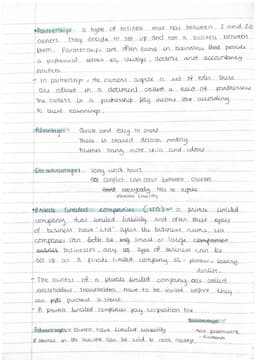 • Partnerships - a type of business that has between 2 and 20
owners. They decide to set up and run a business between
them. Partnerships are often found in businesses that provide
a professional service eg, dentists, doctors and accountancy
practices.
- In partnerships, the owners agree a set of rules. These
are called in a document called a deed of partnership
the owners in a partnership pay income tax according
to their earnings.
Advantages - Quick and easy to start
There is shared decision making
Partners bring more skills and ideas
Disadvantages - long work hours
conflict can occur between owners
everybody has to agree
unlimited liability
• Private limited companies (LTD) - a private limited
company has limited liability and often these types
of business have 'Ltd' after the business name. Ltd
companies can both be small or large
businesses. Any type of business can be
set up as a private limited company eg - plumber,
dentist.
- The owners of a private limited company are called
shareholders. Shareholders have to be invited before they
can purchase a share.
- A private limited companies pay corporation tax.
Advantages - owners have limited liability
shares in the business can be sold to raise money.
Disadvantages
- more paperwork